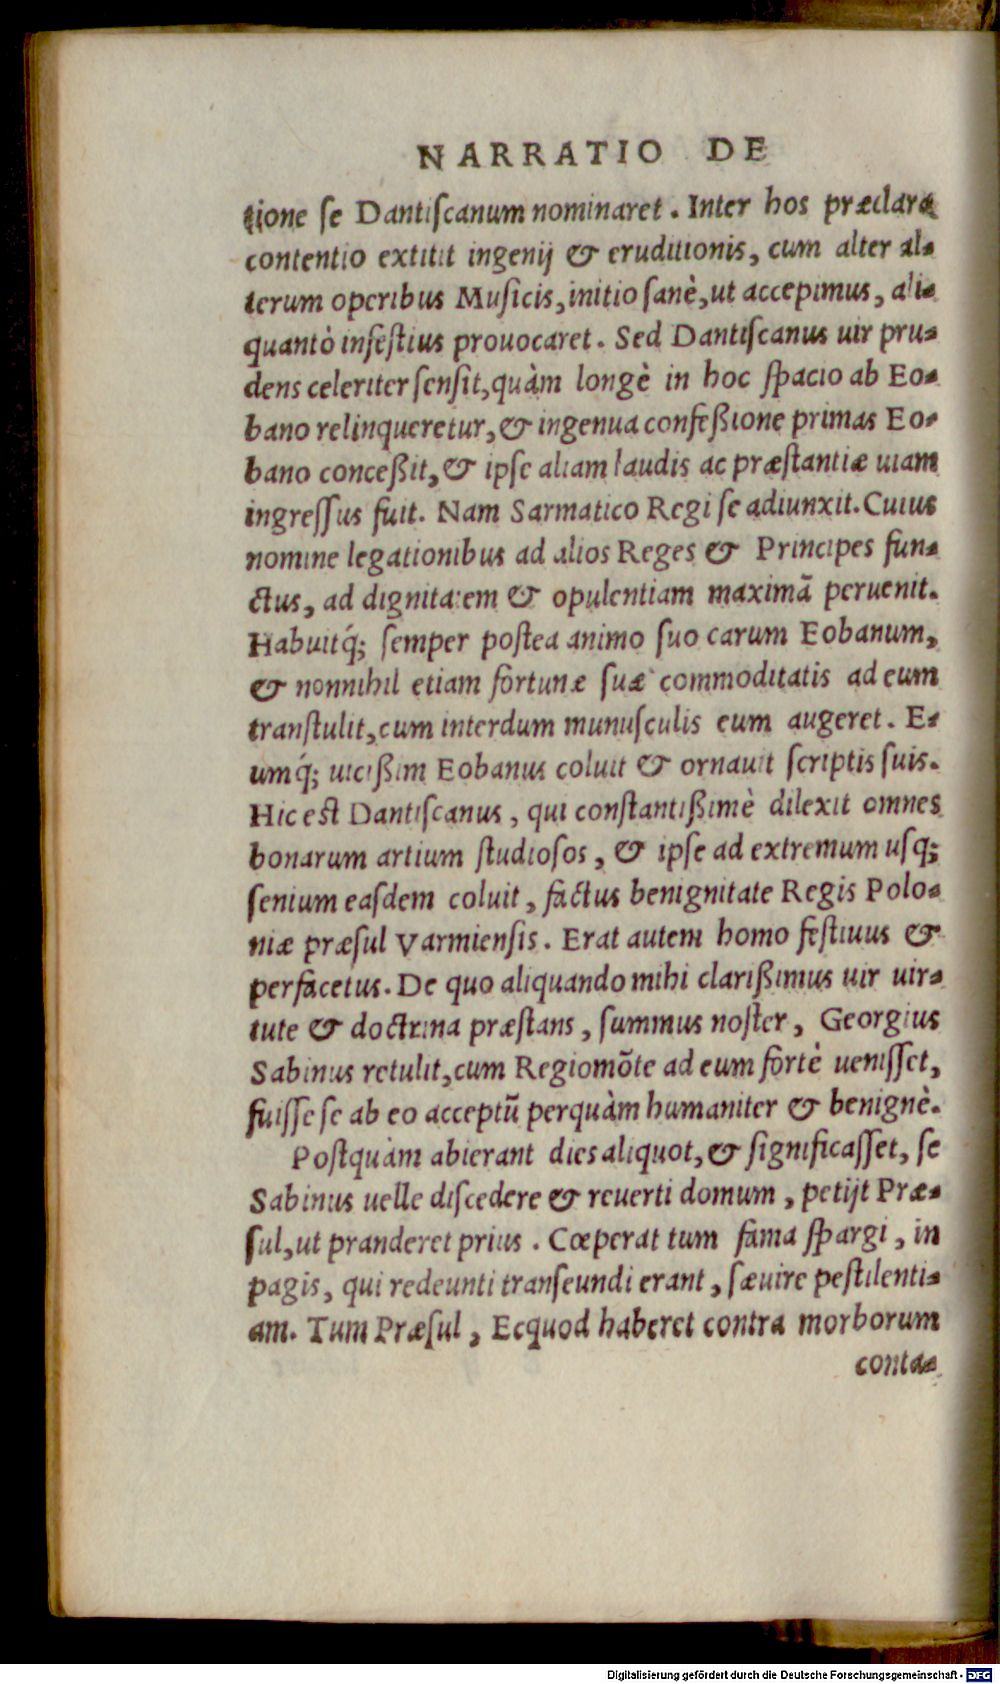 NARRATIO DE
tione se Dantiscanum nominaret. Inter hos præclara
contentio extitit ingenij & eruditionis, cum alter al-
terum operibus Musicis, initio sanè, ut accepimus, ali-
quantò infestius prouocaret. Sed Dantiscanus uir pru-
dens celeriter sensit, quàm longè in hoc spacio ab Eo-
bano relinqueretur, & ingenua confeßione primas Eo-
bano conceßit, & ipse aliam laudis ac præstantiæ uiam
ingressus fuit. Nam Sarmatico Regi se adiunxit. Cuius
nomine legationibus ad alios Reges & Principes fun-
ctus, ad dignitatem & opulentiam maximã peruenit.
Habuitq́; semper postea animo suo carum Eobanum,
& nonnihil etiam fortunæ suæ commoditatis ad eum
transtulit, cum interdum munusculis eum augeret. E-
umq́; uicißim Eobanus coluit & ornauit scriptis suis.
Hic est Dantiscanus, qui constantißimè dilexit omnes
bonarum artium studiosos, & ipse ad extremum usq;
senium easdem coluit, factus benignitate Regis Polo-
niæ præsul Varmiensis. Erat autem homo festiuus &
perfacetus. De quo aliquando mihi clarißimus uir uir-
tute & doctrina præstans, summus noster, Georgius
Sabinus retulit, cum Regiomõte ad eum fortè uenisset,
fuisse se ab eo acceptũ perquàm humaniter & benignè.
Postquàm abierant dies aliquot, & significasset, se
Sabinus uelle discedere & reuerti domum, petijt Præ-
sul, ut pranderet prius. Cœperat tum fama spargi, in
pagis, qui redeunti transeundi erant, sæuire pestilenti-
am. Tum Præsul, Ecquod haberet contra morborum
conta-
Digitalisierung gefördert durch die Deutsche Forschungsgemeinschaft - DFG